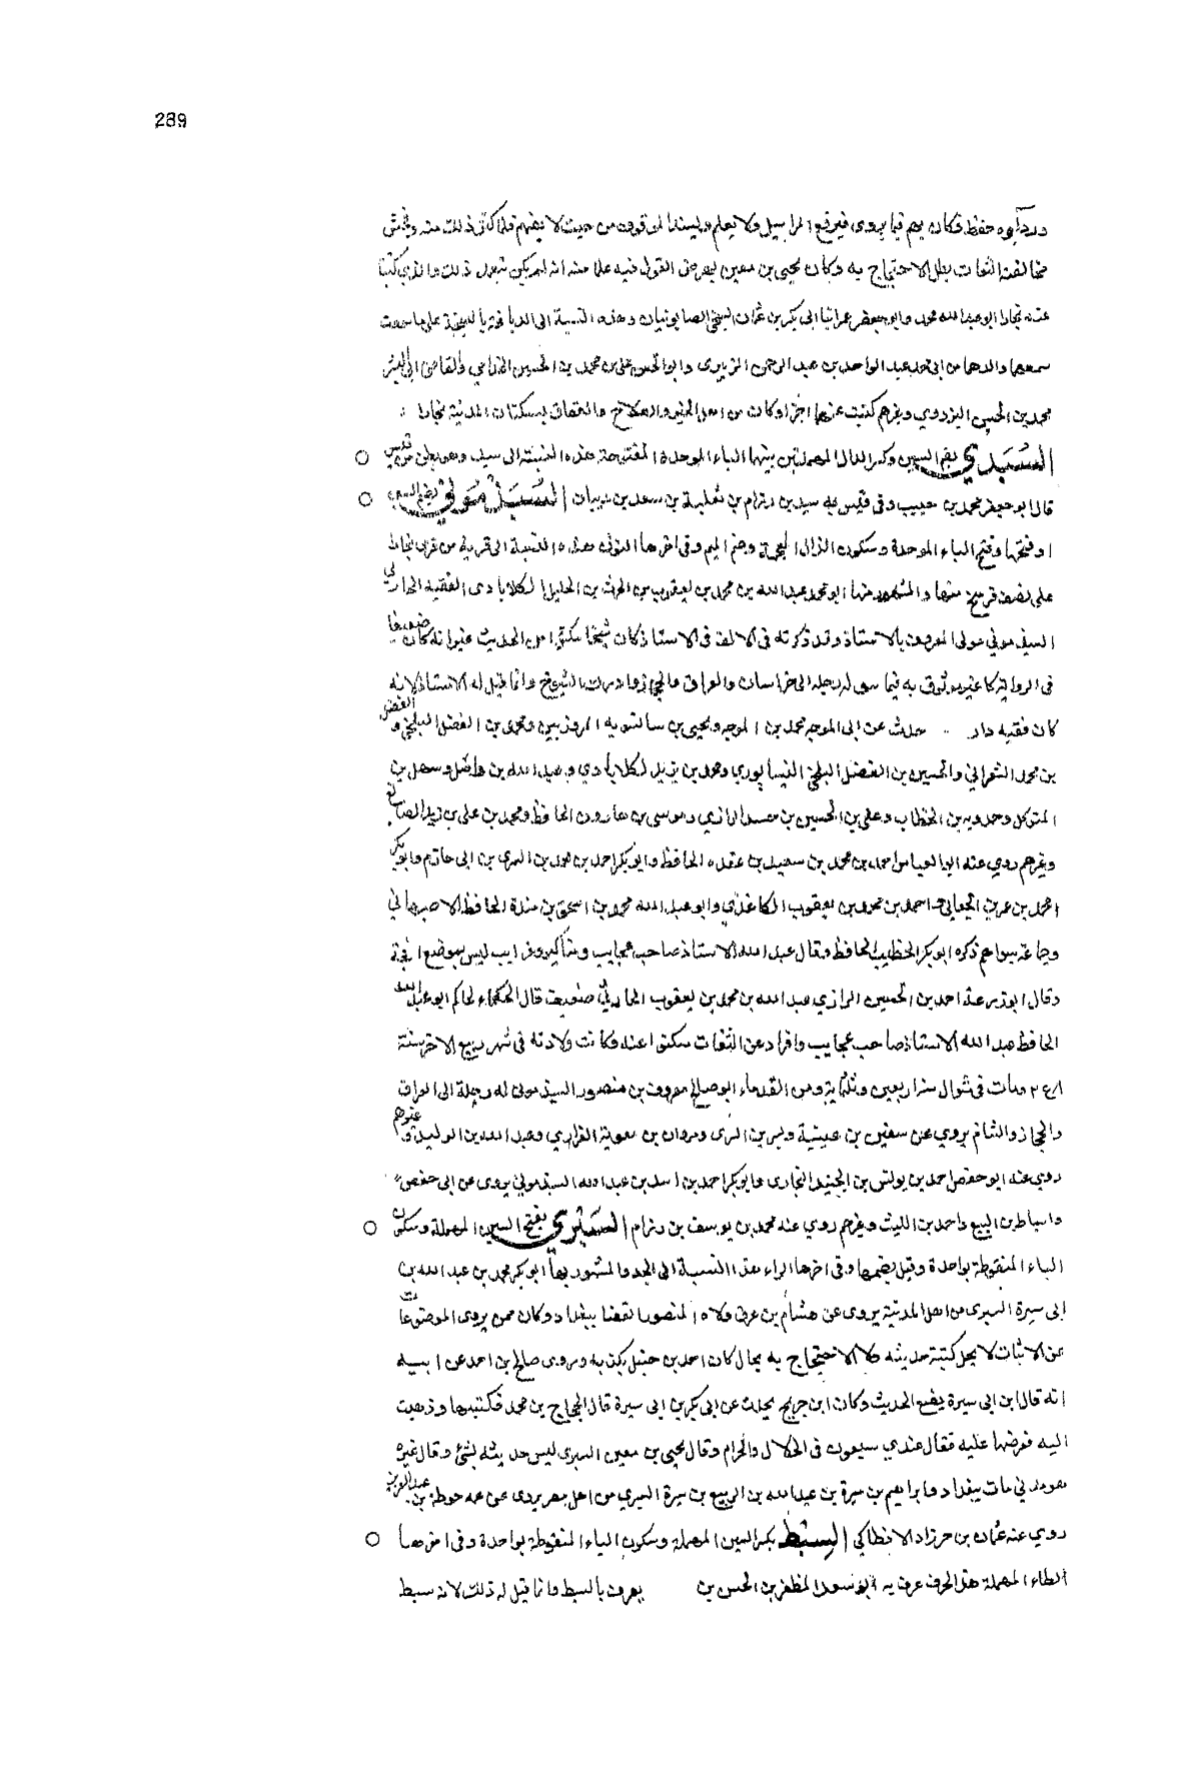 289
ورداءة حفظه فكان يهم فيما يروي فيرفع المراسيل ولا يعلم ويسند الموقوف من حيث لا يفهم فلما كثر ذلك منه وفحش
مخالفته الثقات بطل الاحتجاج به وكان يحيى بن معين يمرض القول فيه علما منه انه لم يكن يتعمد ذلك والذي كتبنا
عنه بخارا ابو عبد الله محمد وابو جعفر عمر ابنا ابى بكر بن عثمان السبخى الصابونيان وهذه النسبة الى الدباغة بالسبخة على ما سمعت
سمعها والدهما من ابى محمد عبد الواحد بن عبد الرحمن الزبيرى وابو الحسن على بن محمد بن الحسين الخذامي والقاضى ابى اليسر
محمد بن الحسين البزدوي وغيرهم كتبت عنهما اجزا وكان من اهل الخير والصلاح والعفاف يسكنان المدينة بخارا
السُبَدي بضم السين وكسر الدال المهملتين بينهما الباء الموحدة المفتوحة هذه النسبة الى سبد وهو بطن من قيس
قال ابو جعفر محمد بن حبيب وفى قيس سبد بن رزام بن ثعلبة بن سعد بن ذبيان السُبَذْمُونى بضم السين
او فتحها وفتح الباء الموحدة وسكون الذال المعجمة وضم الميم وفى اخرها النون هذه النسبة الى قرية من قرى بخارا
على نصف فرسخ منها والمشهور منها ابو محمد عبد الله بن محمد بن يعقوب بن الحرث بن الخليل الكلاباذى الفقيه الحارثي
السبذموني مولى المعروف بالاستاذ وقد ذكرته فى الالف فى الاستاذ كان شيخا مكثرا من الحديث غير انه كان ضعيفا
فى الرواية غير موثوق به فيما له رحلة الى خراسان والعراق والحجاز وادرك الشيوخ وانما قيل له الاستاذ لانه
كان فقيه دار حدث عن ابى الموجه محمد بن الموجه ويحيى بن ساسويه المروزيين ومحمد بن الفضل البلخى والفضل
بن محمد الشعراني والحسين بن الفضل البلخى النيسابوري ومحمد بن يزيد الكلاباذي وعبيد الله بن واصل وسهل بن
المتوكل وحمدويه بن الخطاب وعلي بن الحسين بن الرازي وموسى بن هارون الحافظ ومحمد بن على بن زيد الصايغ
وغيرهم روي عنه ابو العباس احمد بن محمد بن سعيد بن عقده الحافظ وابو بكر احمد بن بن ابى حاتم وابو بكر
محمد بن عمر بن الجعابي احمد بن محمد بن يعقوب الكاغذي وابو عبد الله محمد بن اسحق بن مندة الحافظ الاصبهاني
وجماعة سواهم ذكره ابو بكر الخطيب الحافظ وقال عبد الله الاستاذ صاحب عجايب ومناكير وغرايب ليس بموضع الحجة
وقال ابو زرعة احمد بن الحسين الرازي عبد الله بن محمد بن يعقوب الحارثي ضعيف قال الحاكم ابو عبد الله
الحافظ عبد الله الاستاذ صاحب عجايب وافراد عن الثقات سكتوا عنه وكانت ولادته فى شهر ربيع الاخر سنة
ومات فى شوال سنة اربعين وثلثماية ومن القدماء ابو صالح معروف بن منصور السبذموني له رحلة الى العراق
والحجاز والشام يروي عن سفين بن عيينة وبشر بن السرى ومروان بن معوية الفزاري وعبد الله بن الوليد وغيرهم
روي عنه ابو حفص احمد بن يونس بن الجنيد البخارى وابو بكر احمد بن اسد بن عبد الله السبذموني يروى عن ابى حفص
واسباط بن اليسع واحمد بن الليث وغيرهم روي عنه محمد بن يوسف بن رزام السَبْري بفتح السين المهملة وسكون
الباء المنقوطة بواحدة وقيل بضمها وفى اخرها الراء هذه النسبة الى الجد والمشهور بها ابو بكر محمد بن عبد الله بن
ابى سبرة السبرى من اهل المدينة يروى عن هشام بن عروة ولاه المنصور القضا ببغداد وكان ممن يروى الموضوعات
عن الاثبات لا يحل كتبة حديثه ولا الاحتجاج به بحال كان احمد بن حنبل يكذبه وروى صالح بن احمد عن ابيه
انه قال ابن ابى سبرة يضع الحديث وكان ابن جريج يحدث عن ابى بكر بن ابى سبرة قال الحجاج بن محمد فكتبتها وذهبت
اليه فعرضها عليه فقال عندي سبعون فى الحلال والحرام وقال يحيى بن معين السبرى ليس حديثه بشئ وقال غيره
هو مدني مات ببغداد وابراهيم بن سبرة بن عبد الله بن الربيع بن سبرة السبري من اهل مصر يروى عن عمه حرملة بن عبد العزيز
روي عنه عثمان بن خرزاد الانطاكي السِبْط بكسر السين المهملة وسكون الباء المنقوطة بواحدة وفى اخرها
الطاء المهملة هذا الحرف عرف به ابو سعد المظفر بن الحسن بن يعرف بالسبط وانما قيل له ذلك لانه سبط